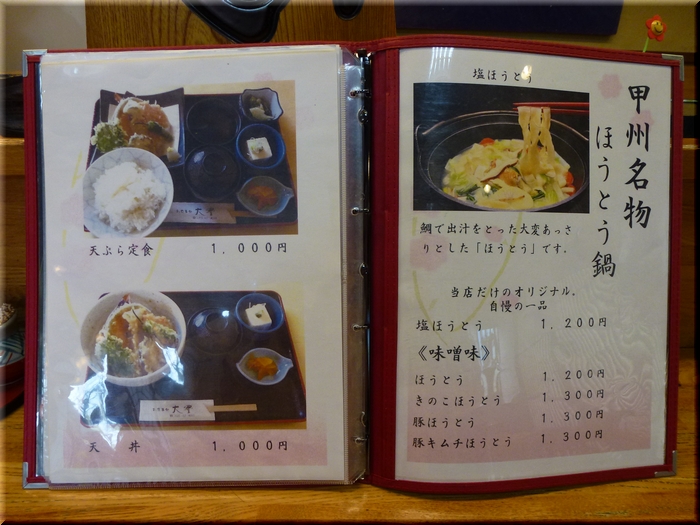 天ぷら定食　１，０００円
天　丼　１，０００円
甲州名物
ほうとう鍋
塩ほうとう
鯛で出汁をとった大変あっさ
りとした「ほうとう」です。
当店だけのオリジナル、
自慢の一品
塩ほうとう　１，２００円
《味噌味》
ほうとう　１，２００円
きのこほうとう　１，３００円
豚ほうとう　１，３００円
豚キムチほうとう　１，３００円